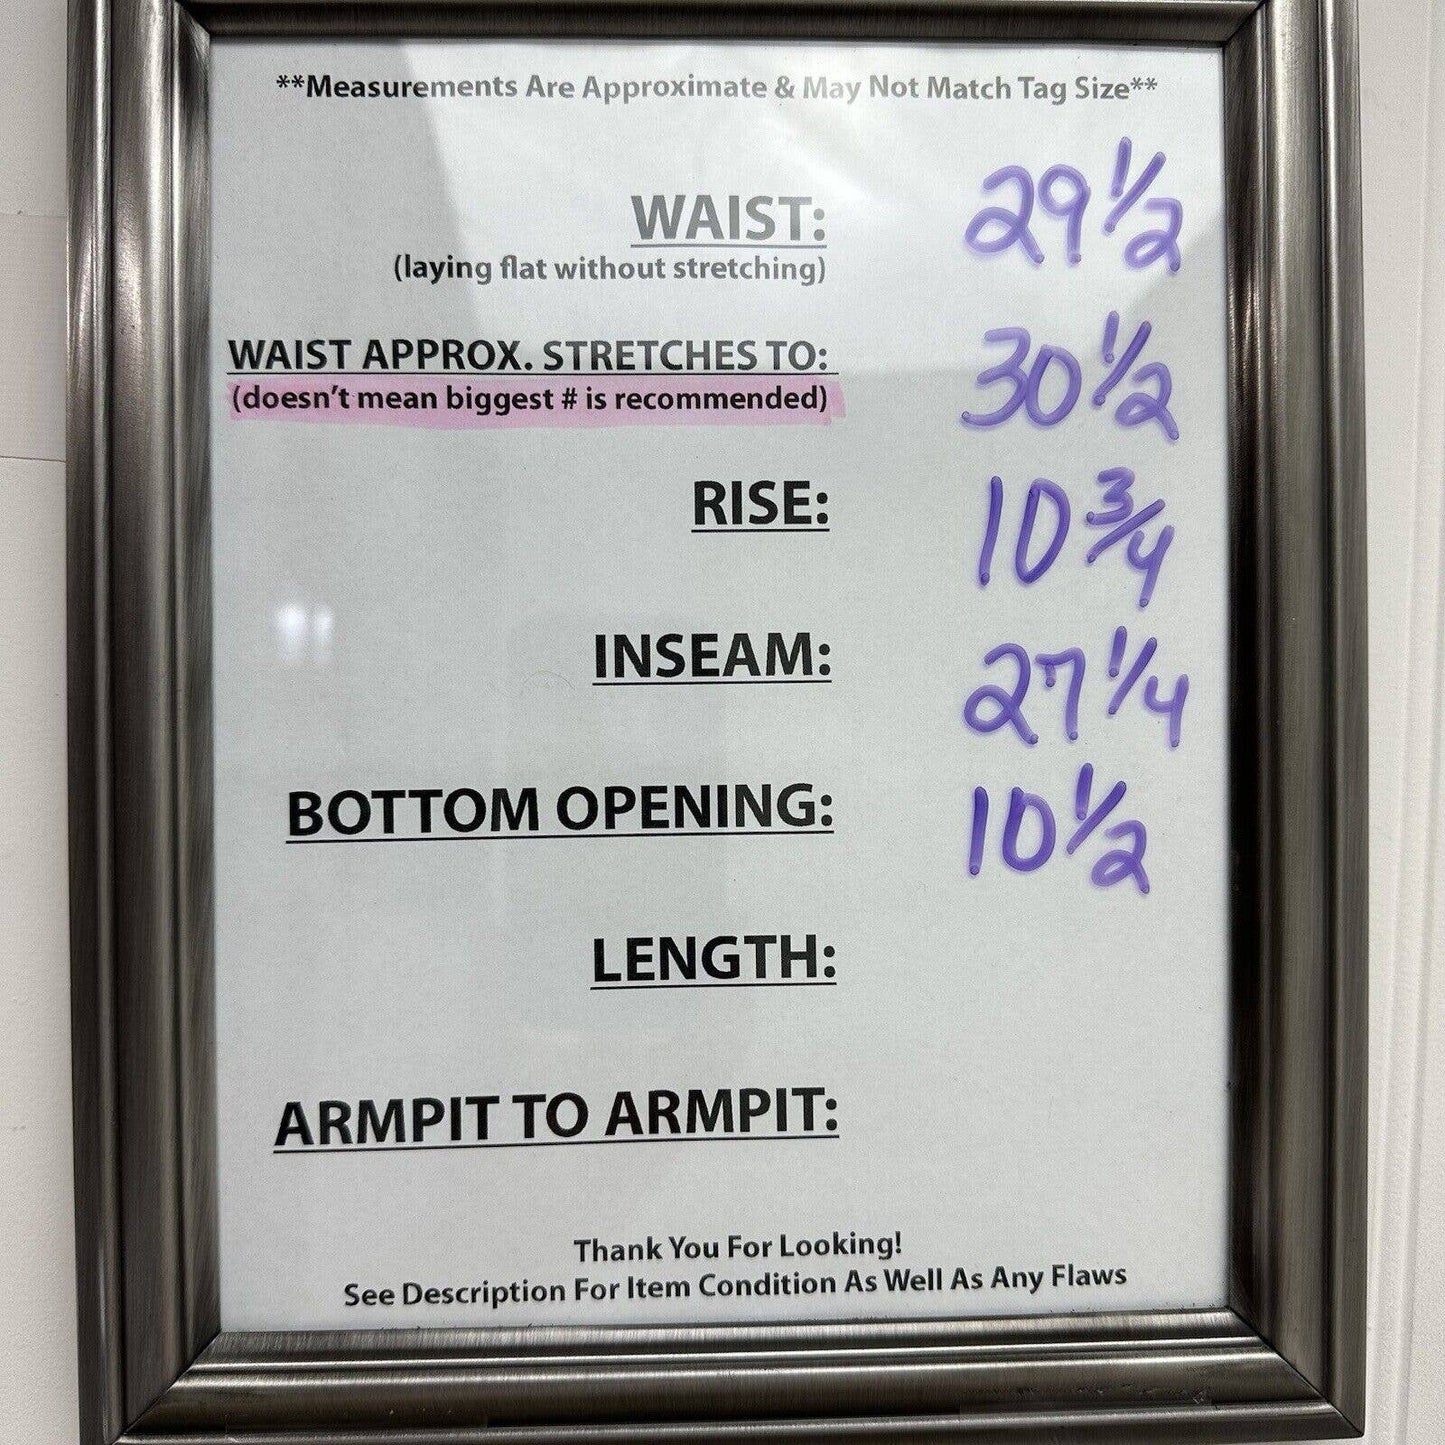 **Measurements Are Approximate & May Not Match Tag Size**
WAIST: 29 1/2
(laying flat without stretching)
WAIST APPROX. STRETCHES TO: 30 1/2
(doesn't mean biggest # is recommended)
RISE: 10 3/4
INSEAM: 27 1/4
BOTTOM OPENING: 10 1/2
LENGTH:
ARMPIT TO ARMPIT:
Thank You For Looking!
See Description For Item Condition As Well As Any Flaws